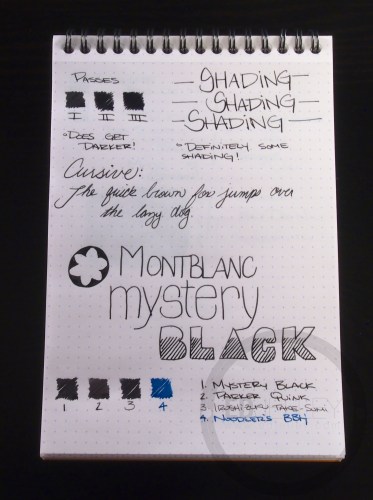 PASSES
I II III
DOES GET
DARKER!
SHADING
SHADING
SHADING
DEFINITELY SOME
SHADING!
Cursive:
The quick brown fox jumps over
the lazy dog.
MONTBLANC
mystery
BLACK
1 2 3 4
1. MYSTERY BLACK
2. PARKER QUINK
3. IROSHIZUKU TAKE-SUMI
4. NOODLER'S BBH